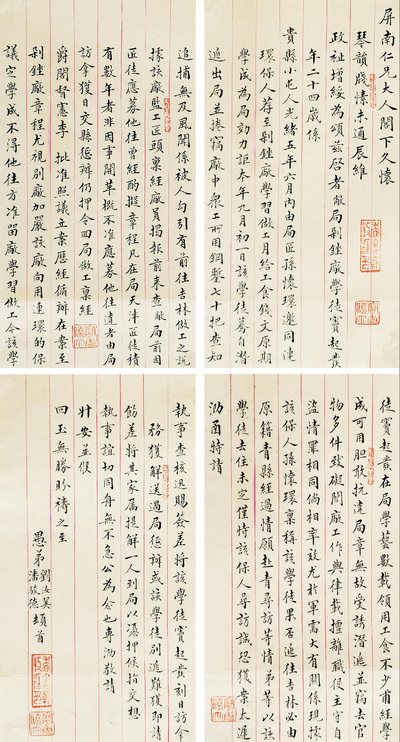 屏南仁兄大人閣下久懷
琴韻殘愫未通辰維
政祉增綏為頌茲啓者敝局剉銼廠學徒竇起貴
年二十四歲係
貴縣小屯人光緒五年六月內由局匠孫懷環邀同連
環保人荐至剉銼廠學習做工月給工食錢文原期
學成為局効力詎本年九月初一日該學徒驀自潛
逃出局並捲竊廠中衆工所用鋼鏨七十把查知
追捕無及風聞係被人勾引有前往吉林做工之說
據該廠監工匠頭稟報前來查敝局前因
匠徒應募他往曾稟經酌擬章程凡在局天津匠徒積
有數年者非因事開革概不准應募他往違者由局
訪拿獲日交縣懲辦仍押令回局做工稟經
爵閣督憲李 批准照議立案歷經備辦在案至
剉銼廠章程尤視別廠加嚴該廠向用連環的保
議定學成不得他往方准留廠學習做工今該學
徒竇起貴在局學藝數載領用工食不少甫經學
成可用胆敢抗違局章無故受誘潛逃並竊去官
物多件致礙開廠工作與律載擅離職役主守自
盜情罪相同倘相率效尤於軍需大有關係現據
該保人孫懷環稟稱該學徒果否逃往吉林必由
原籍青縣經過情願赴青尋訪等情弟等以該
學徒去住未定僅恃該保人尋訪誠恐獲案太遲
泐函特請
執事查核迅賜簽差將該學徒竇起貴剋日訪拿
務獲解送過局懲辦或該學徒別逃難獲即請
飭差將其家属提解一人到局以憑押候指交想
執事誼切同舟無不急公為念也專泐敬請
升安並候
回玉無勝盼禱之至
愚弟劉汝翼潘駿德頓首